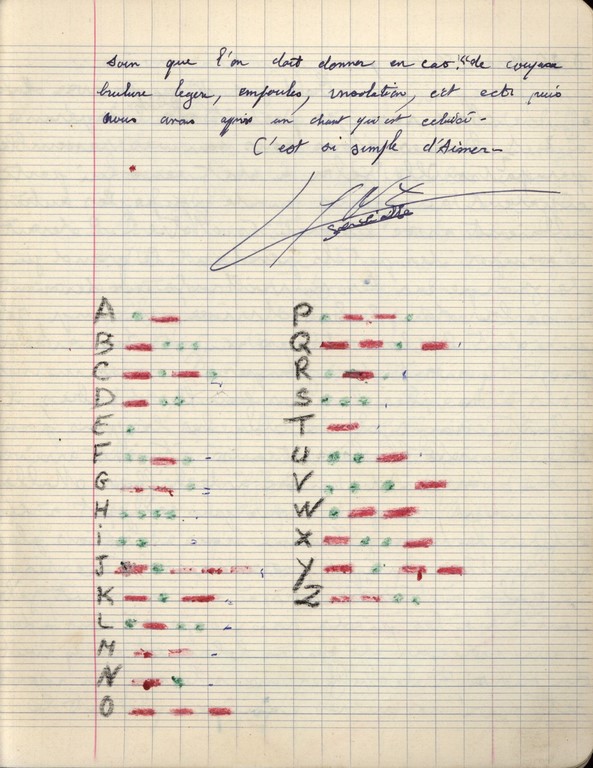 soin que l'on doit donner en cas "de coupure
brulure leger, ampoules, insolation, ect ect puis
nous avons apris un chant qui est celuici -
C'est si simple d'Aimer -
A
B
C
D
E
F
G
H
i
J
K
L
M
N
O
P
Q
R
S
T
U
V
W
X
Y
Z